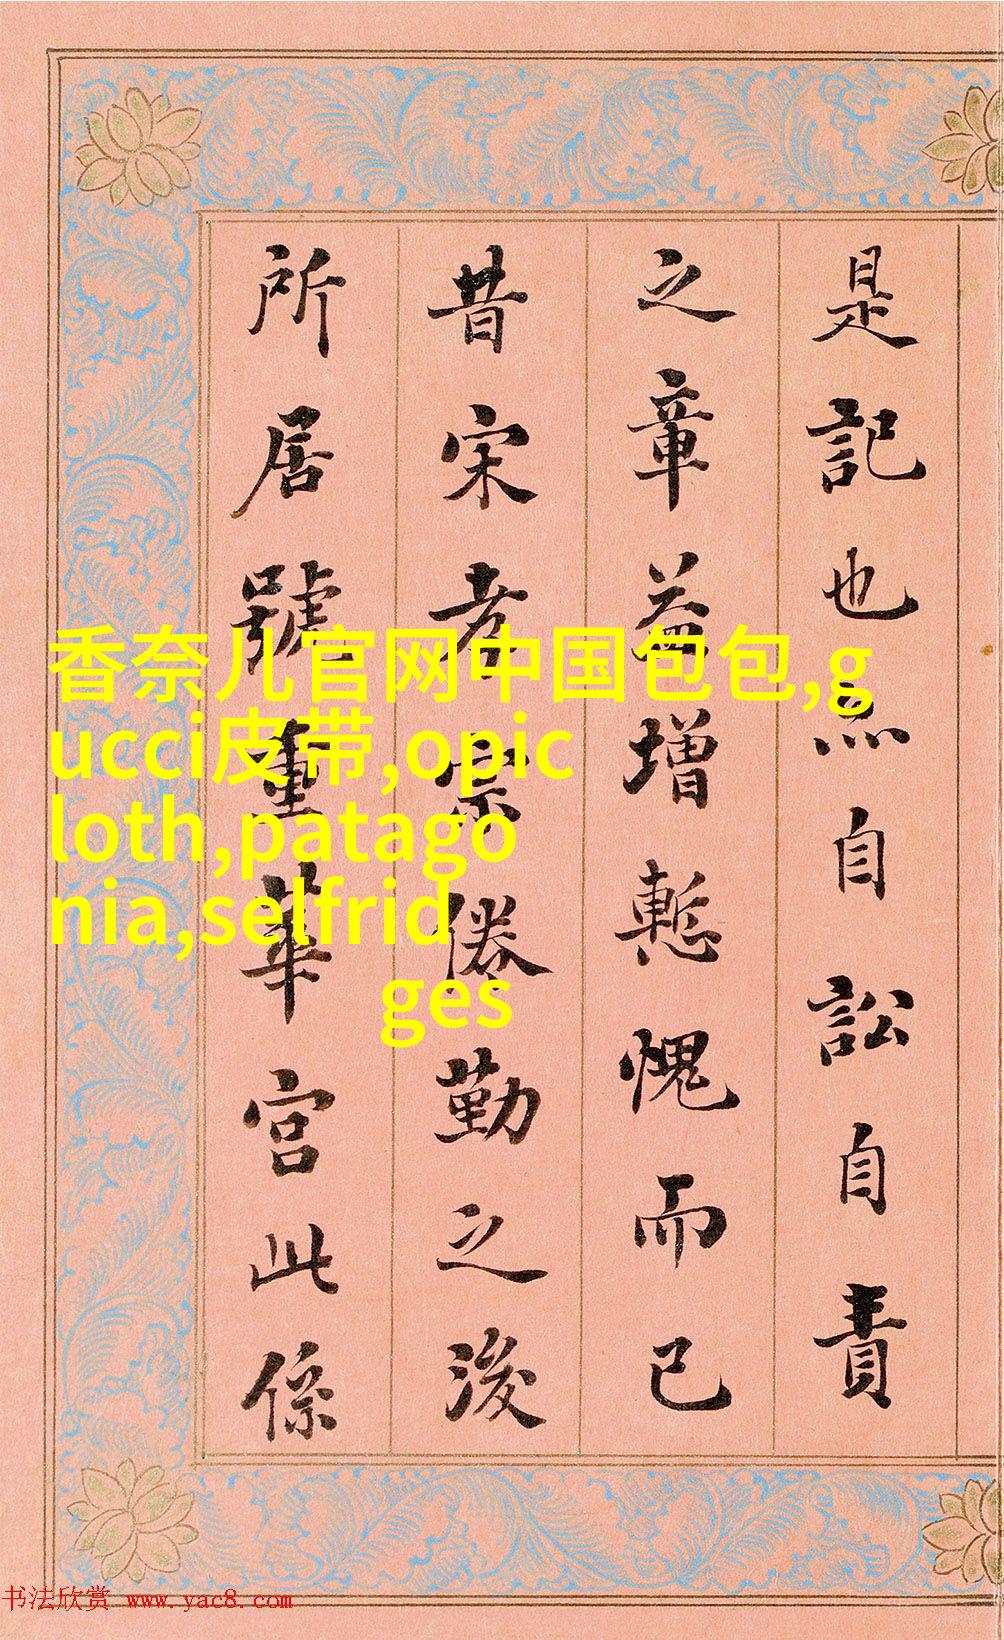 是記也亦自訟自責
之章益增慙愧而已
昔宋孝宗倦勤之後
所居號重華宮此係
香奈儿官网中国包包,g
ucci皮带,opic
loth,patago
nia,selfrid
ges
书法欣赏 www.yac8.com